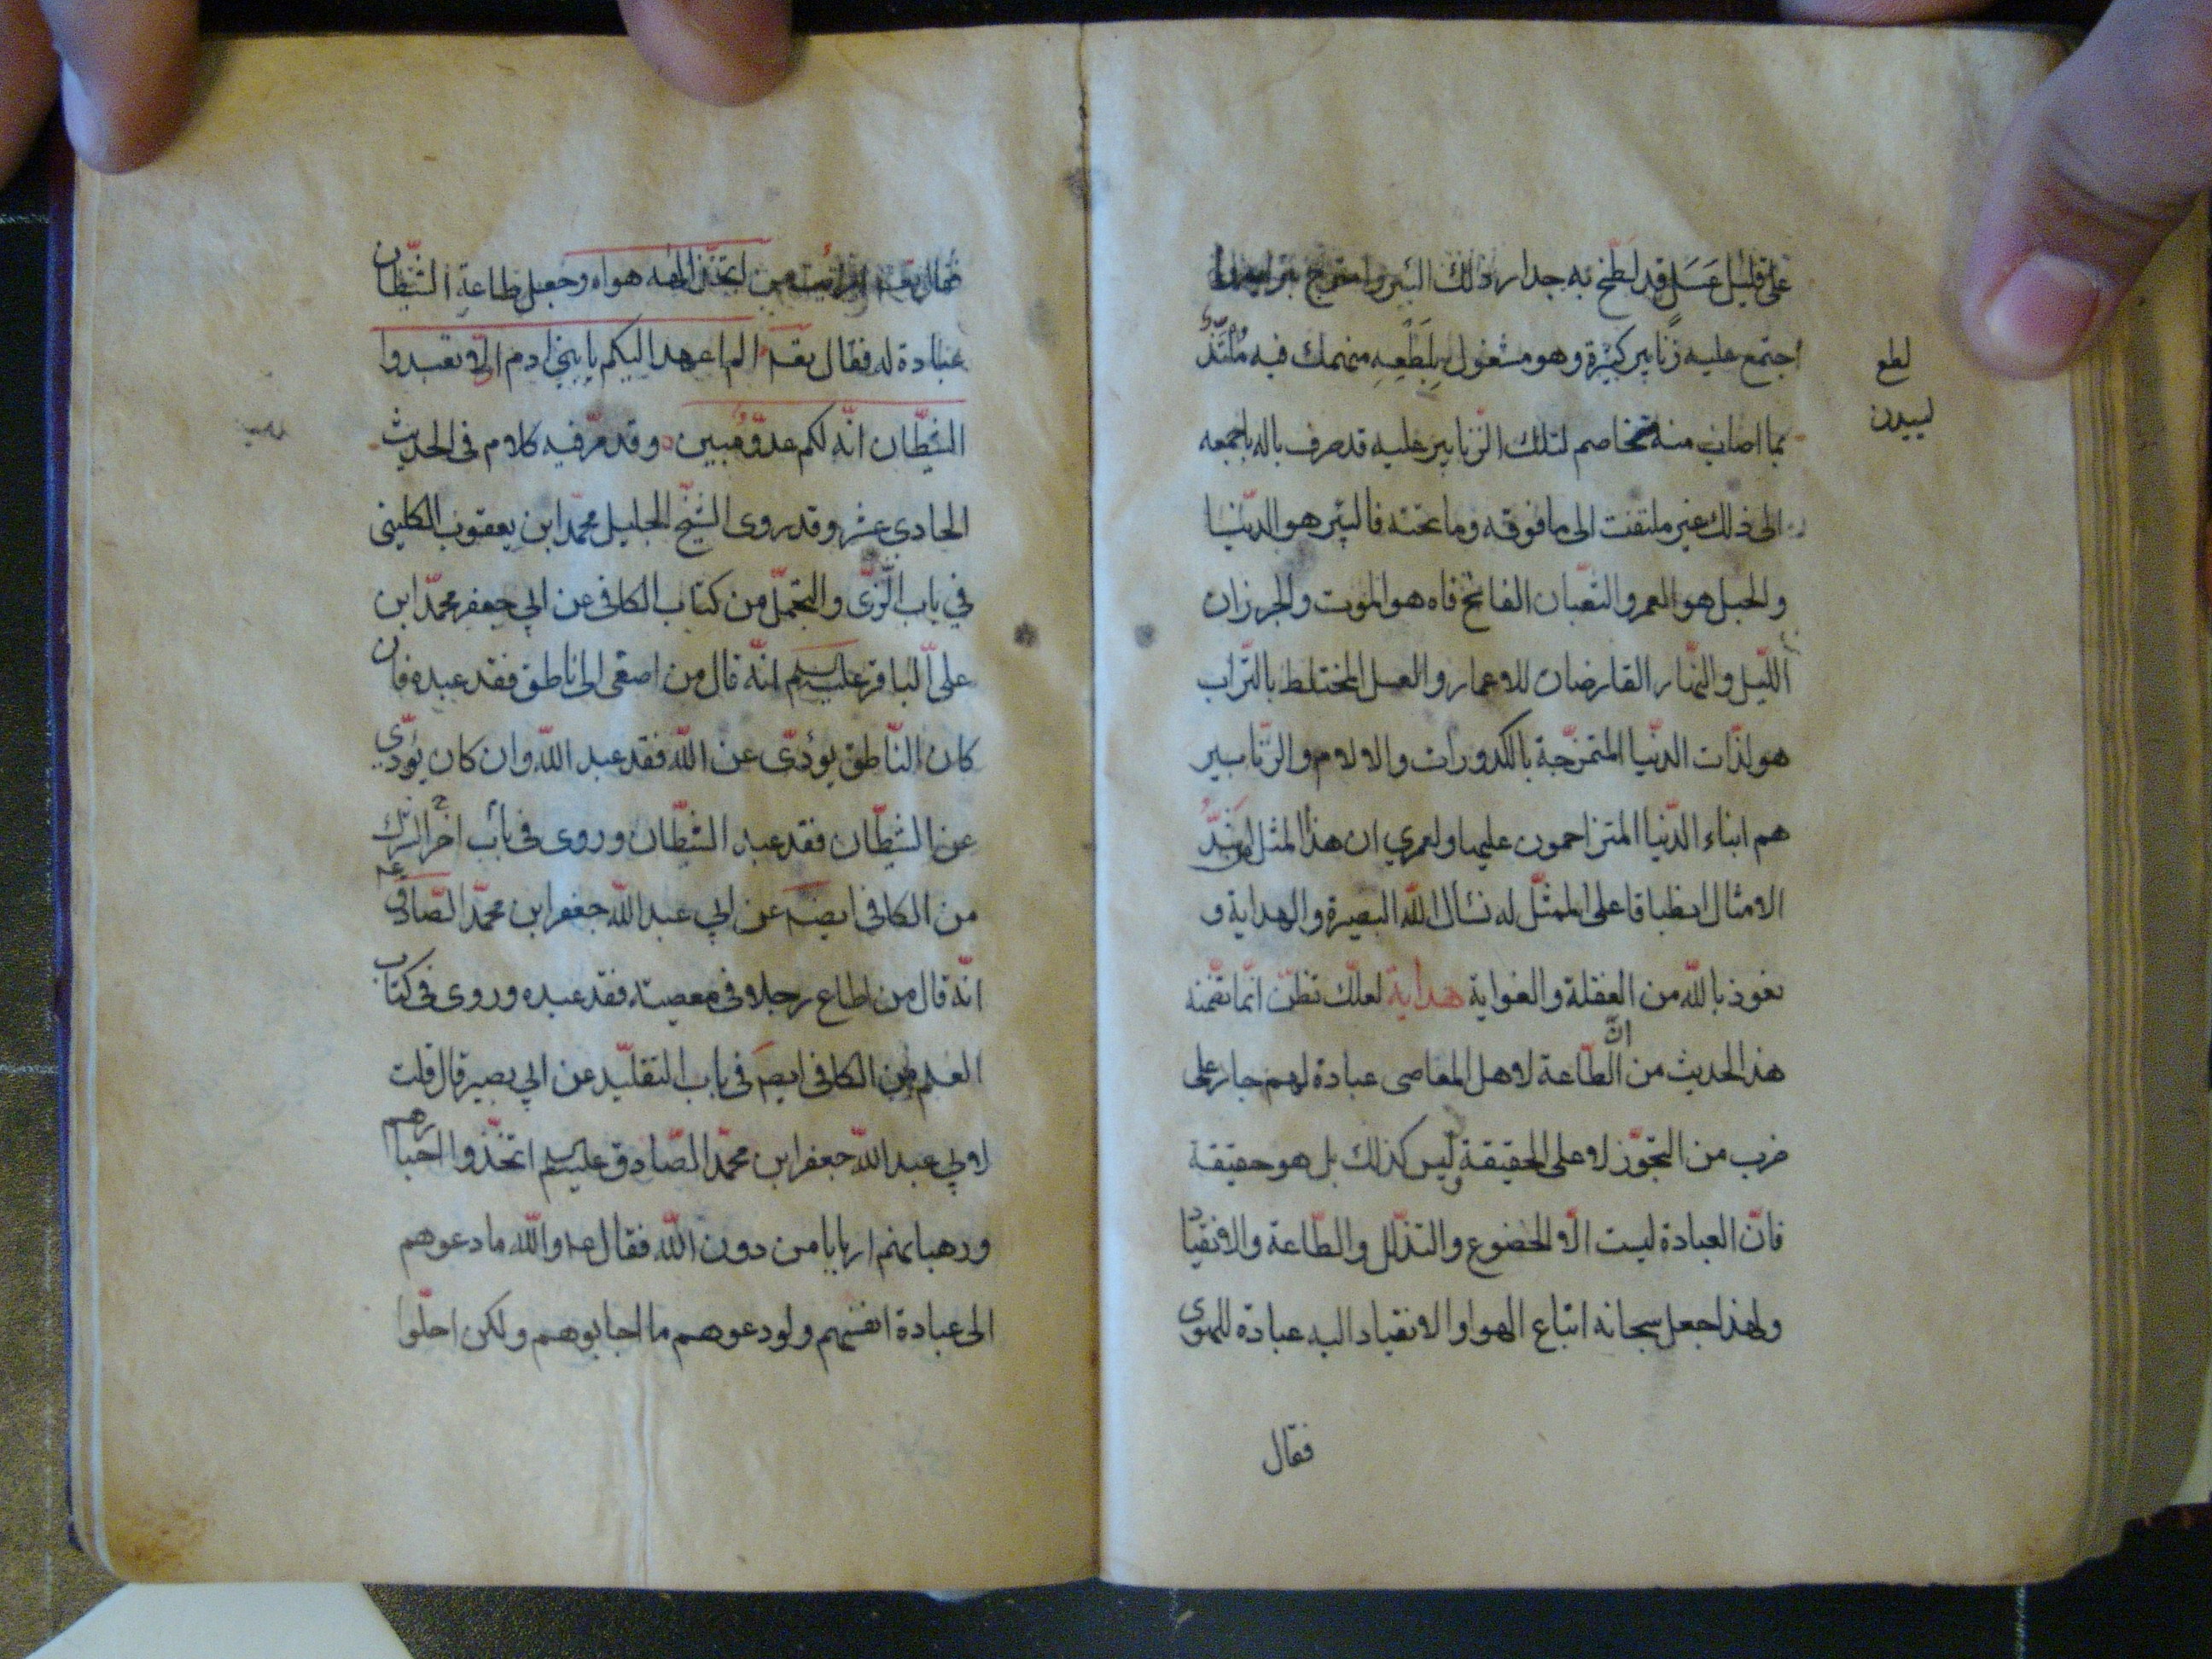 على قليل عسل قد لطخ به جدار ذلك البئر وامتزج بترابه
اجتمع عليه زنابير كثيرة وهو مشغول بلطعه منهمك فيه ملتذ
لطع
ليسيدن
بما اصاب منه مخاصم لتلك الزنابير عليه قد صرف باله باجمعه
الى ذلك غير ملتفت الى ما فوقه وما تحته فالبئر هو الدنيا
والحبل هو العمر والثعبان الفاتح فاه هو الموت والجرزان
الليل والنهار القارضان للاعمار والعسل المختلط بالتراب
هو لذات الدنيا الممتزجة بالكدورات والالام والزنابير
هم ابناء الدنيا المتزاحمون عليها ولعمري ان هذا المثل من اشد
الامثال انطباقا على الممثل له نسأل الله البصيرة والهداية و
نعوذ بالله من الغفلة والغواية هداية لعلك تظن انما تضمنه
هذا الحديث من ان الطاعة لاهل المعاصى عبادة لهم جار على
ضرب من التجوز لا على الحقيقة وليس كذلك بل هو حقيقة
فان العبادة ليست الا الخضوع والتذلل والطاعة والانقياد
ولهذا جعل سبحانه اتباع الهوا والانقياد اليه عبادة للهوى
فقال
فقال تعـ افرايت من اتخذ الهه هواه وجعل طاعة الشيطان
عبادة له فقال تعـ الم اعهد اليكم يا بنى ادم الا تعبدوا
الشيطان انه لكم عدو مبين وقد مر فيه كلام فى الحديث
الحادى عشر وقد روى الشيخ الجليل محمد ابن يعقوب الكلينى
في باب الزى والتجمل من كتاب الكافى عن ابي جعفر محمد ابن
على الباقر عليه السلم انه قال من اصغى الى ناطق فقد عبده فان
كان الناطق يؤدى عن الله فقد عبد الله وان كان يؤدى
عن الشيطان فقد عبد الشيطان وروى فى باب اخر الشرك
من الكافى ايضـ عن ابي عبد الله جعفر ابن محمد الصادق عم
انه قال من اطاع رجلا فى معصيته فقد عبده وروى فى كتاب
العلم من الكافى ايضـ فى باب التقليد عن ابي بصير قال قلت
لابي عبد الله جعفر ابن محمد الصادق عليه السلم اتخذوا احبارهم
ورهبانهم اربابا من دون الله فقال عم والله ما دعوهم
الى عبادة انفسهم ولو دعوهم ما اجابوهم ولكن احلوا